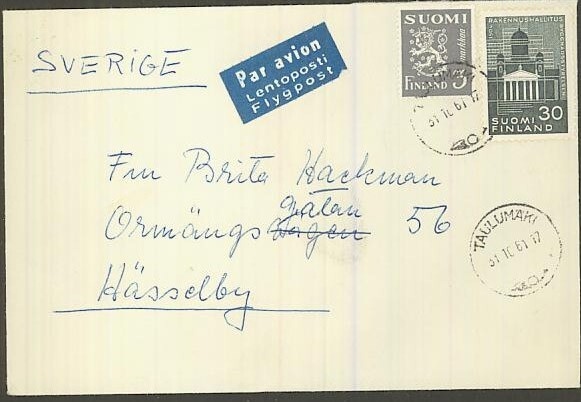 SVERIGE
Par avion
Lentoposti
Flygpost
SUOMI
markkaa
FINLAND 5
RAKENNUSHALLITUS
30
SUOMI
FINLAND
TAULUMÄKI
31 10 61 17
Fru Brita Hackman
gatan
Ormängs vägen 56
Hässelby
TAULUMÄKI
31 10 61 17